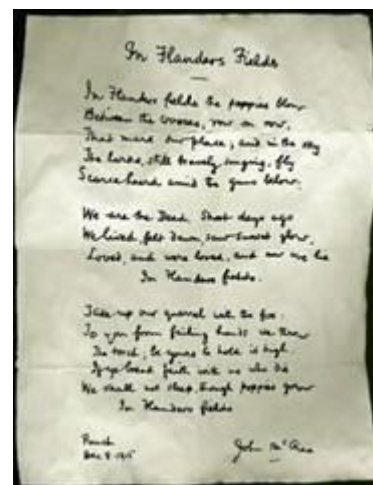 In Flanders Fields
In Flanders fields the poppies blow
Between the crosses, row on row,
That mark our place; and in the sky
The larks, still bravely singing, fly
Scarce heard amid the guns below.
We are the Dead. Short days ago
We lived, felt dawn, saw sunset glow,
Loved, and were loved, and now we lie
In Flanders fields.
Take up our quarrel with the foe:
To you from failing hands we throw
The torch; be yours to hold it high
If ye break faith with us who die
We shall not sleep, though poppies grow
In Flanders fields
Punch
Dec 8 · 1915
John McCrae